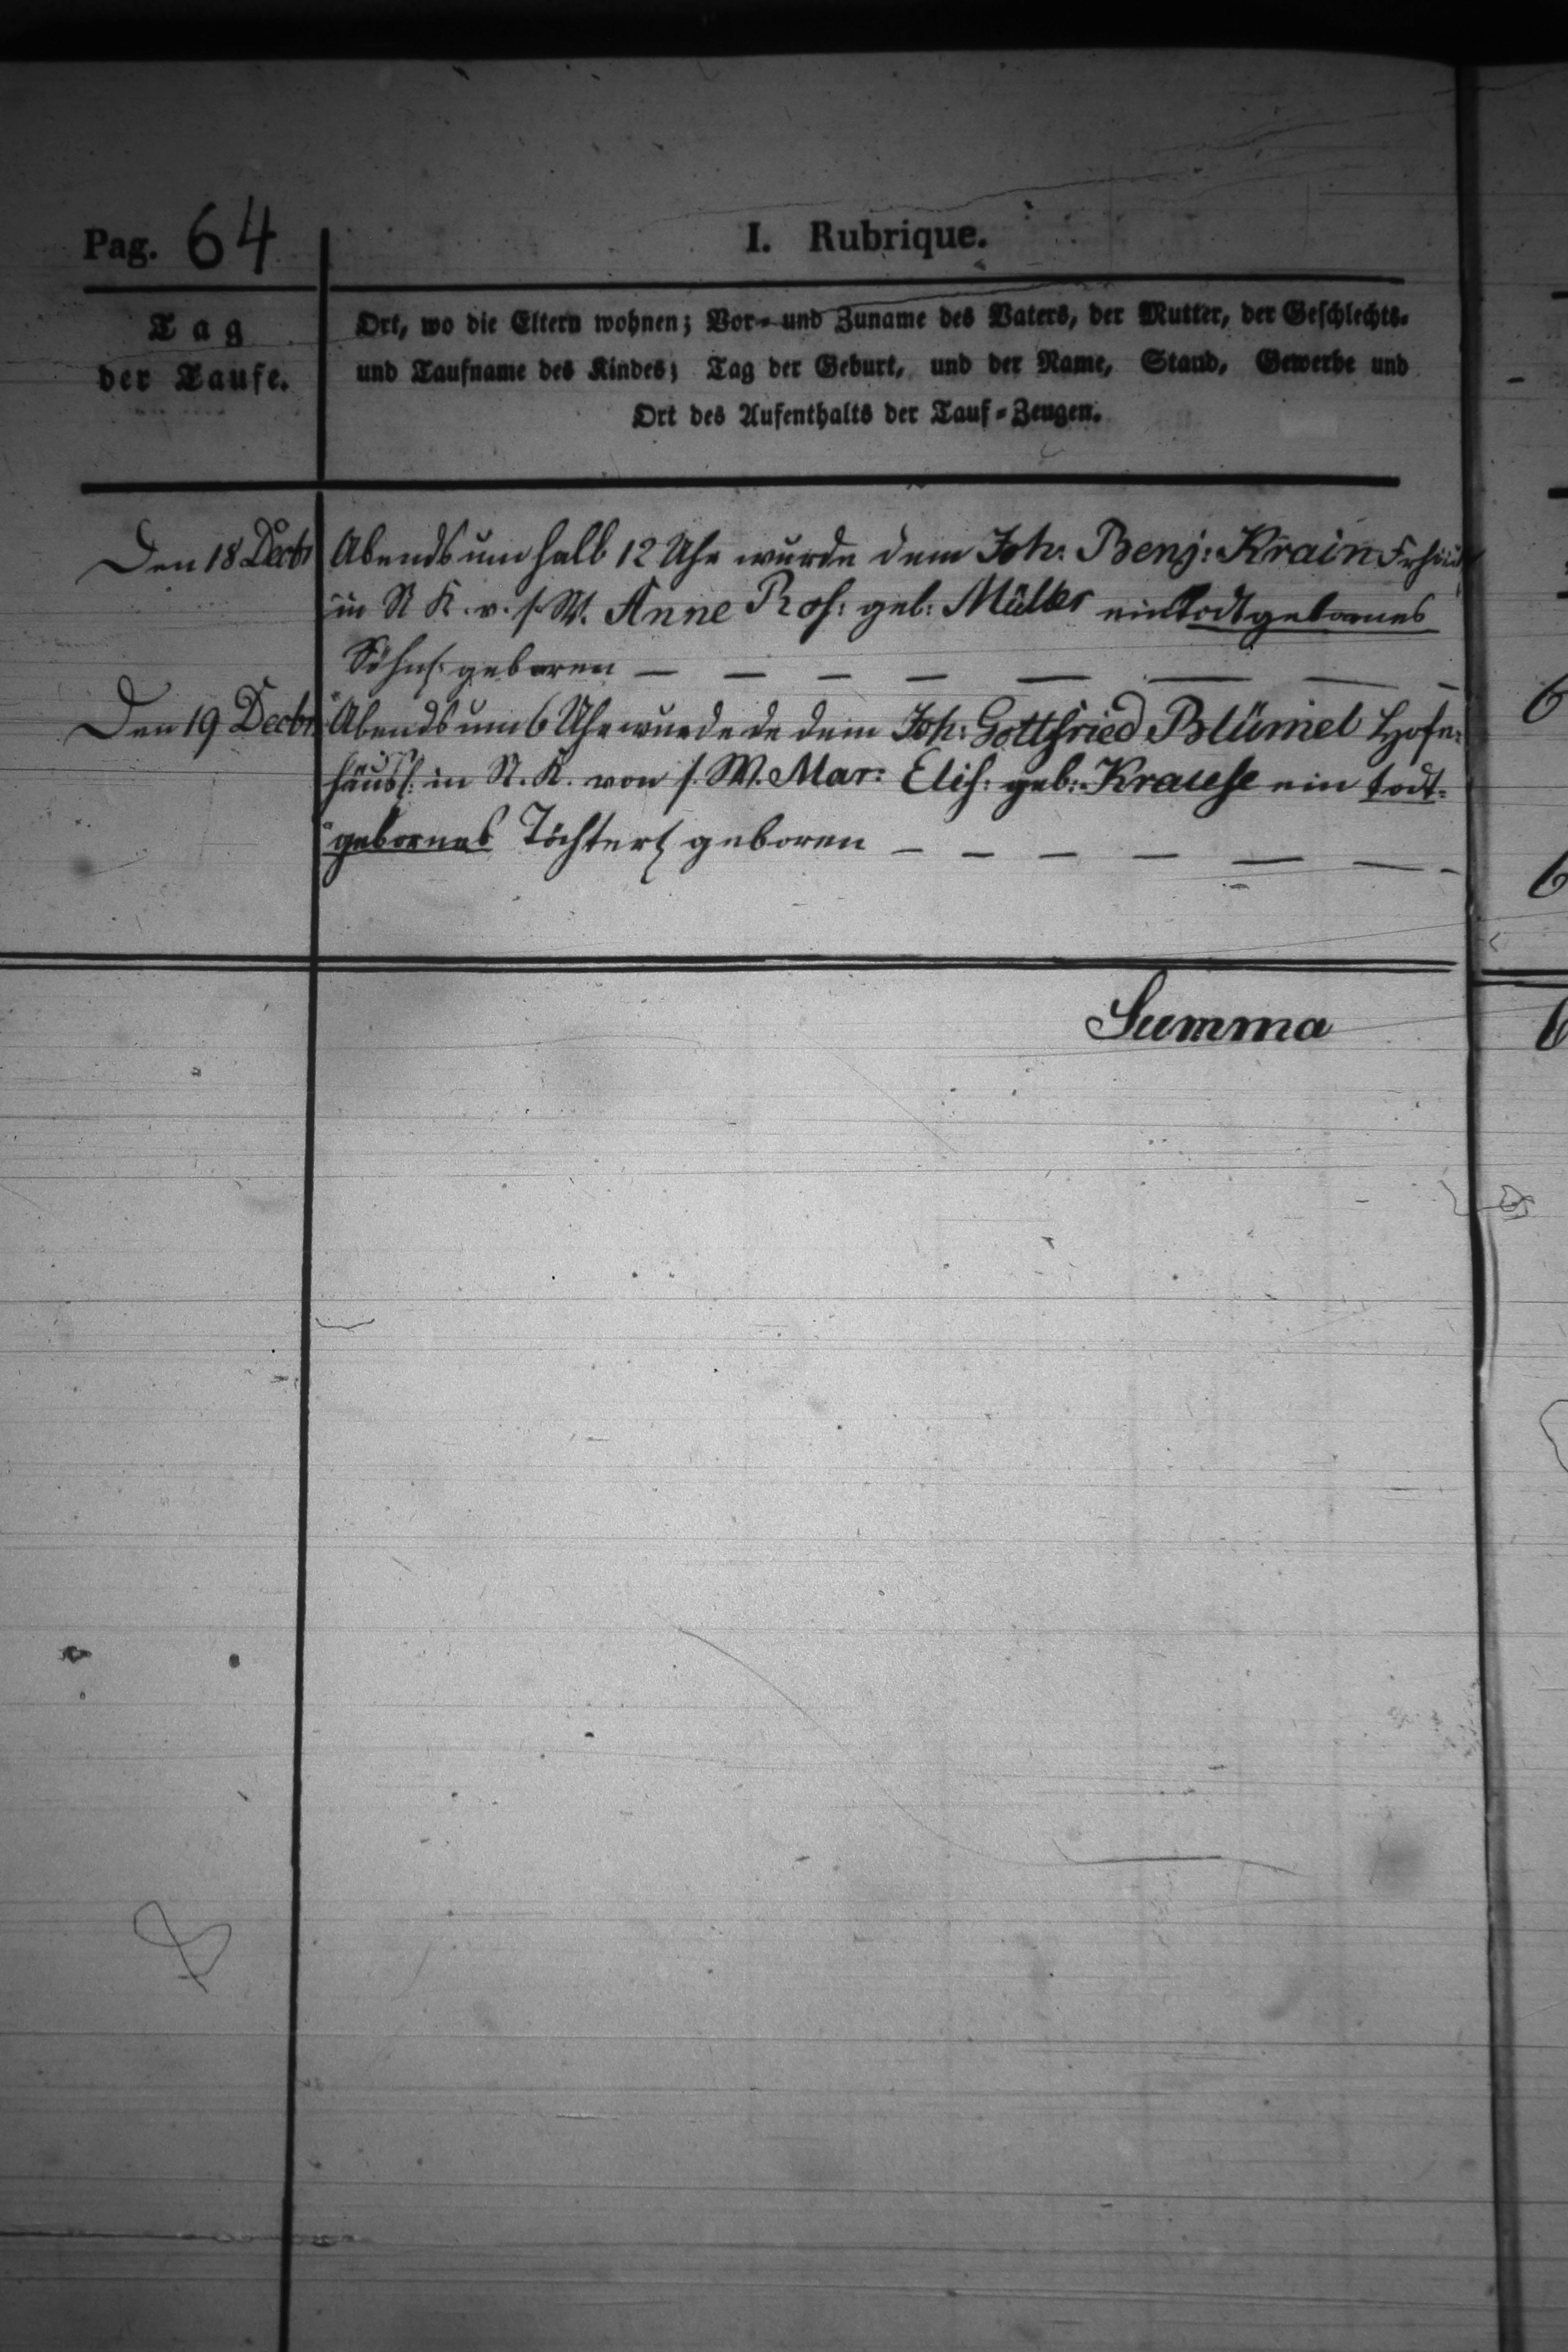 Pag. 64
I. Rubrique.
Tag
der Taufe.
Ort, wo die Eltern wohnen; Vor- und Zuname des Vaters, der Mutter, der Geschlechts-
und Taufname des Kindes; Tag der Geburt, und der Name, Stand, Gewerbe und
Ort des Aufenthalts der Tauf-Zeugen.
Den 18 Decbr Abends um halb 12 Uhr wurde dem Joh. Benj: Krain
in N K. v. s. W. Anne Ros: geb: Müller ein todtgebornes
Söhnl: geboren — — — — — — — —
Den 19 Decbr. Abends um 6 Uhr wurde de dem Joh: Gottfried Blümel Hofe-
häusl: in N. K. von s. W. Mar: Elis: geb: Krause ein todt-
gebornes Töchterl geboren — — — — — — —
Summa